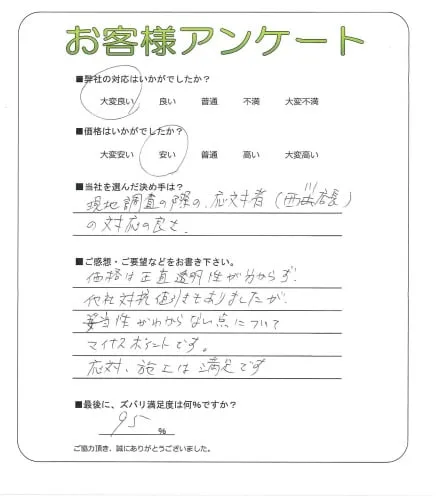 お客様アンケート
■弊社の対応はいかがでしたか?
大変良い 良い 普通 不満 大変不満
■価格はいかがでしたか?
大変安い 安い 普通 高い 大変高い
■当社を選んだ決め手は?
現地調査の際の、応対者(西川店長)
の対応の良さ
■ご感想・ご要望などをお書き下さい。
価格は正直透明性が分からず、
他社対抗値引きもありましたが、
妥当性がわからない点について
マイナスポイントです。
応対、施工は満足です
■最後に、ズバリ満足度は何%ですか?
95 %
ご協力頂き、誠にありがとうございました。